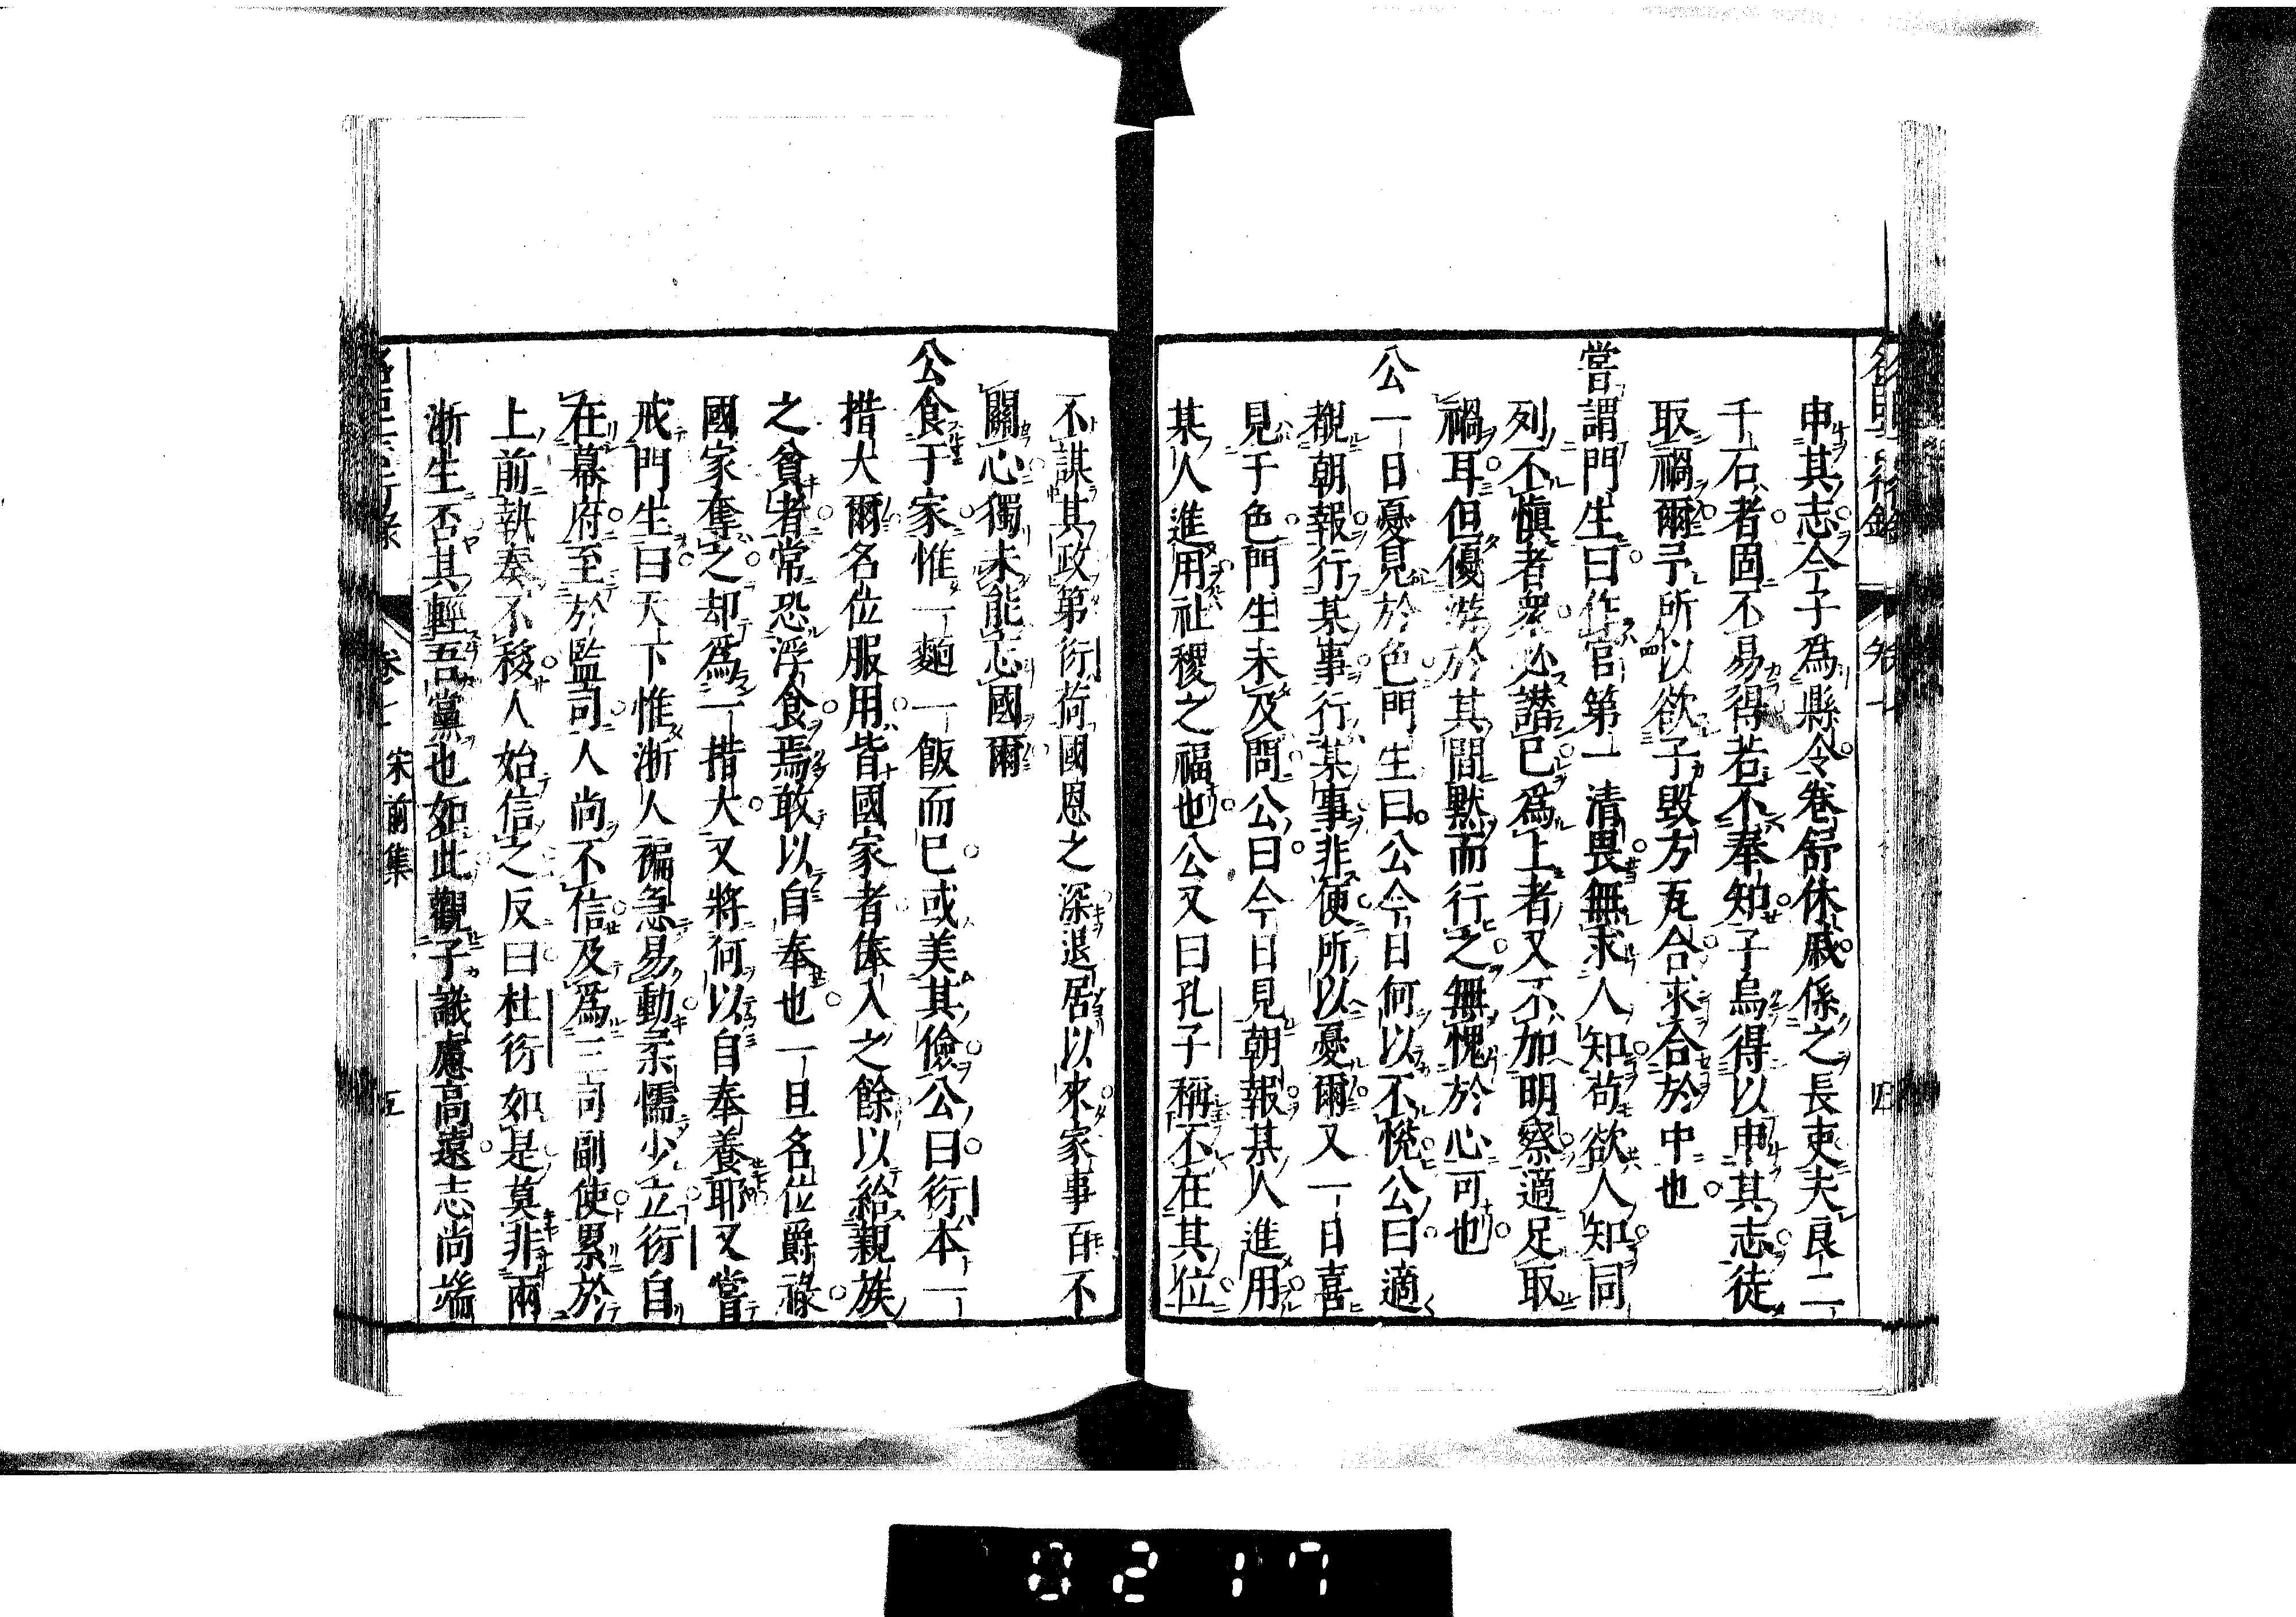 申其志今子爲縣令卷舒休戚係之長吏夫良二
千石者固不易得若不奉知子烏得以申其志徒
取禍爾予所以欲子毀方瓦合求合於中也
嘗謂門生曰作官第一清畏無求人知苟欲人知同
列不愼者衆必譖已爲上者又不加明察適足取
禍耳但優游於其間默而行之無愧於心可也
公一日憂見於色門生曰公今日何以不悅公曰適
覩朝報行某事行某事非便所以憂爾又一日喜
見于色門生未及問公曰今日見朝報某人進用
某人進用社稷之福也公又曰孔子稱不在其位
不謀其政第衍荷國恩之深退居以來家事百不
關心獨未能忘國爾
公食于家惟一麵一飯而已或美其儉公曰衍本一
措大爾名位服用皆國家者俸入之餘以給親族
之貧者常恐浮食焉敢以自奉也一旦名位爵祿
國家奪之却爲一措大又將何以自奉養耶又嘗
戒門生曰天下惟浙人褊急易動柔懦少立衍自
在幕府至於監司人尚不信及爲三司副使累於
上前執奏不移人始信之反曰杜衍如是莫非兩
浙生否其輕吾黨也如此觀子識慮高遠志尚端
卷七 宋前集 五